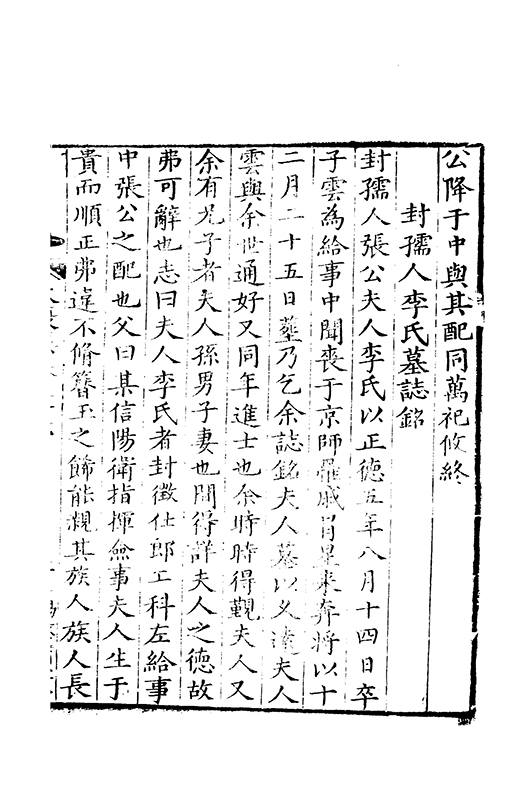 公降于中與其配同萬祀攸終
封孺人李氏墓誌銘
封孺人張公夫人李氏以正德五年八月十四日卒
子雲為給事中聞喪于京師罹戚冒星来奔將以十
二月二十五日塟乃乞余誌銘夫人墓以义逹夫人
雲與余世通好又同年進士也余時時得覲夫人又
余有兄子者夫人孫男子妻也間得詳夫人之德故
弗可辭也志曰夫人李氏者封徵仕郎工科左給事
中張公之配也父曰某信陽衛指揮僉事夫人生于
貴而順正弗違不脩簪玉之餙能親其族人族人長